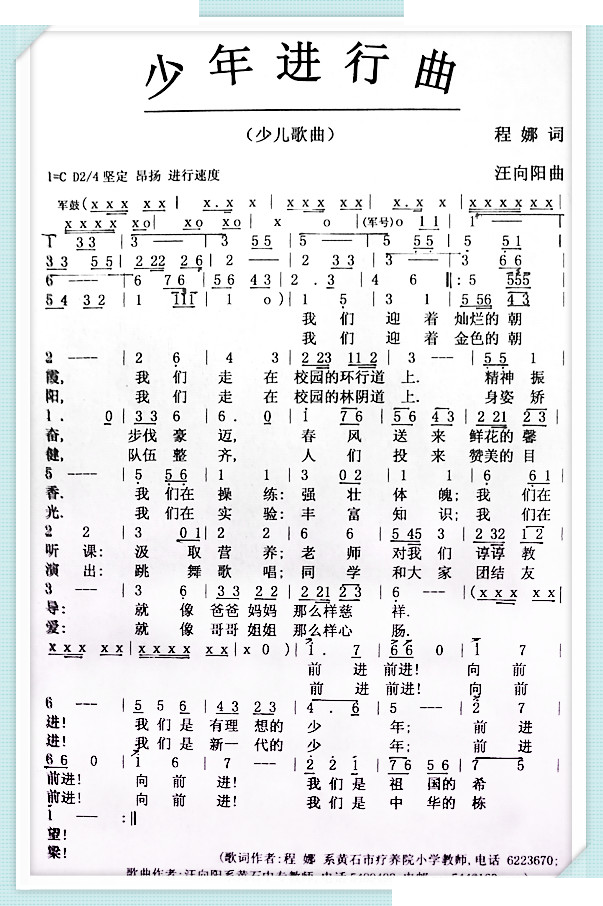 少年进行曲
(少儿歌曲) 程娜词
1=C D2/4 坚定 昂扬 进行速度 汪向阳曲
军鼓(x x x x x | x. x x | x x x x x | x. x x | x x x x x |
x x x x x o | x o x o | x o | (军号) o 1 1 |
1 3 3 | 3 --- | 3 5 5 | 5 --- | 5 5 5 | 5 5 1 |
3 3 5 5 | 2 22 2 6 | 2 --- | 2 --- | 3 --- | 3 6 6 |
6 --- | 6 7 6 | 5 6 4 3 | 2 . 3 | 4 6 ‖: 5 555 |
5 4 3 2 | 1 111 | 1 o ) | 1 5 | 3 1 | 5 56 4 3 |
我 们 迎 着 灿烂的 朝
我 们 迎 着 金色的 朝
2 ---- | 2 6 | 4 3 | 2 23 11 2 | 3 --- | 5 5 1 |
霞, 我 们 走 在 校园的环行道 上. 精神 振
阳, 我 们 走 在 校园的林阴道 上. 身姿 矫
1 . 0 | 3 3 6 | 6 . 0 | 1 7 6 | 5 6 4 3 | 2 02 3 0 |
奋, 步伐 豪 迈, 春 风 送 来 鲜花的 馨
健, 队伍 整 齐, 人 们 投 来 赞美的 目
5 ---- | 5 5 6 | 1 1 | 3 0 2 | 1 1 | 6 6 1 |
香. 我 们在 操 练: 强 壮 体 魄; 我 们在
光. 我 们在 实 验: 丰 富 知 识; 我 们在
2 2 | 3 0 1 | 2 2 | 6 6 | 5 45 3 | 2 32 1 2 |
听 课: 汲 取 营 养; 老 师 对我 们 谆谆 教
演 出: 跳 舞 歌 唱; 同 学 和大 家 团结 友
3 --- | 3 3 | 2 2 1 1 | 2 21 2 3 | 6 --- | (x x x x x |
导: 就 像 爸爸 妈妈 那么样慈 祥.
爱: 就 像 哥哥 姐姐 那么样心 肠.
x x x x | x x x x x | x 0 ) | 1 . 7 | 6 6 0 | 1 7 |
前 进 前进! 向 前
前 进 前进! 向 前
6 --- | 5 5 6 | 4 3 2 3 | 4 . 6 | 5 --- | 2 7 |
进! 我 们 是 有理 想的 少 年; 前 进
进! 我 们 是 新一 代的 少 年; 前 进
6 6 0 | 1 6 | 7 --- | 2 2 1 | 7 6 5 6 | 7 5 |
前进! 向 前 进! 我 们 是 祖 国的 希
前进! 向 前 进! 我 们 是 中 华的 栋
1 --- :‖
望!
梁!
(歌词作者:程 娜 系黄石市疗养院小学教师,电话 6223670;